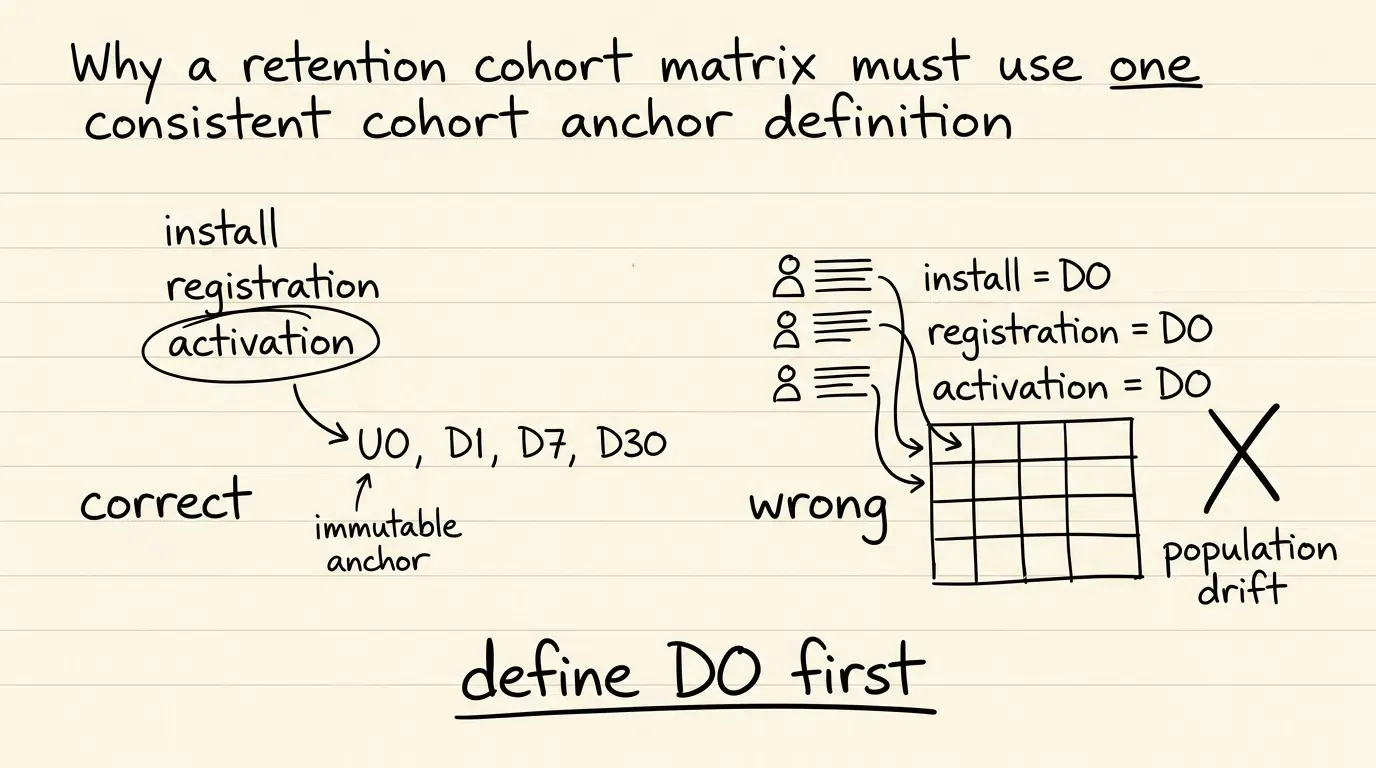 Why a retention cohort matrix must use one
consistent cohort anchor definition
install
registration
activation
U0, D1, D7, D30
immutable
anchor
correct
install = D0
registration = D0
activation = D0
wrong
population
drift
define D0 first